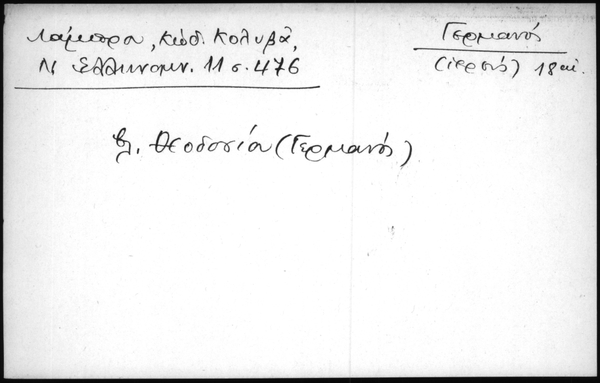 Λάμπρου, Κώδ. Κολυβᾶ,
Ν Ἑλληνομν. 11 σ. 476
Γερμανός
(ἱερεύς) 18 αἰ.
βλ. Θεοδοσίου (Γερμανός)